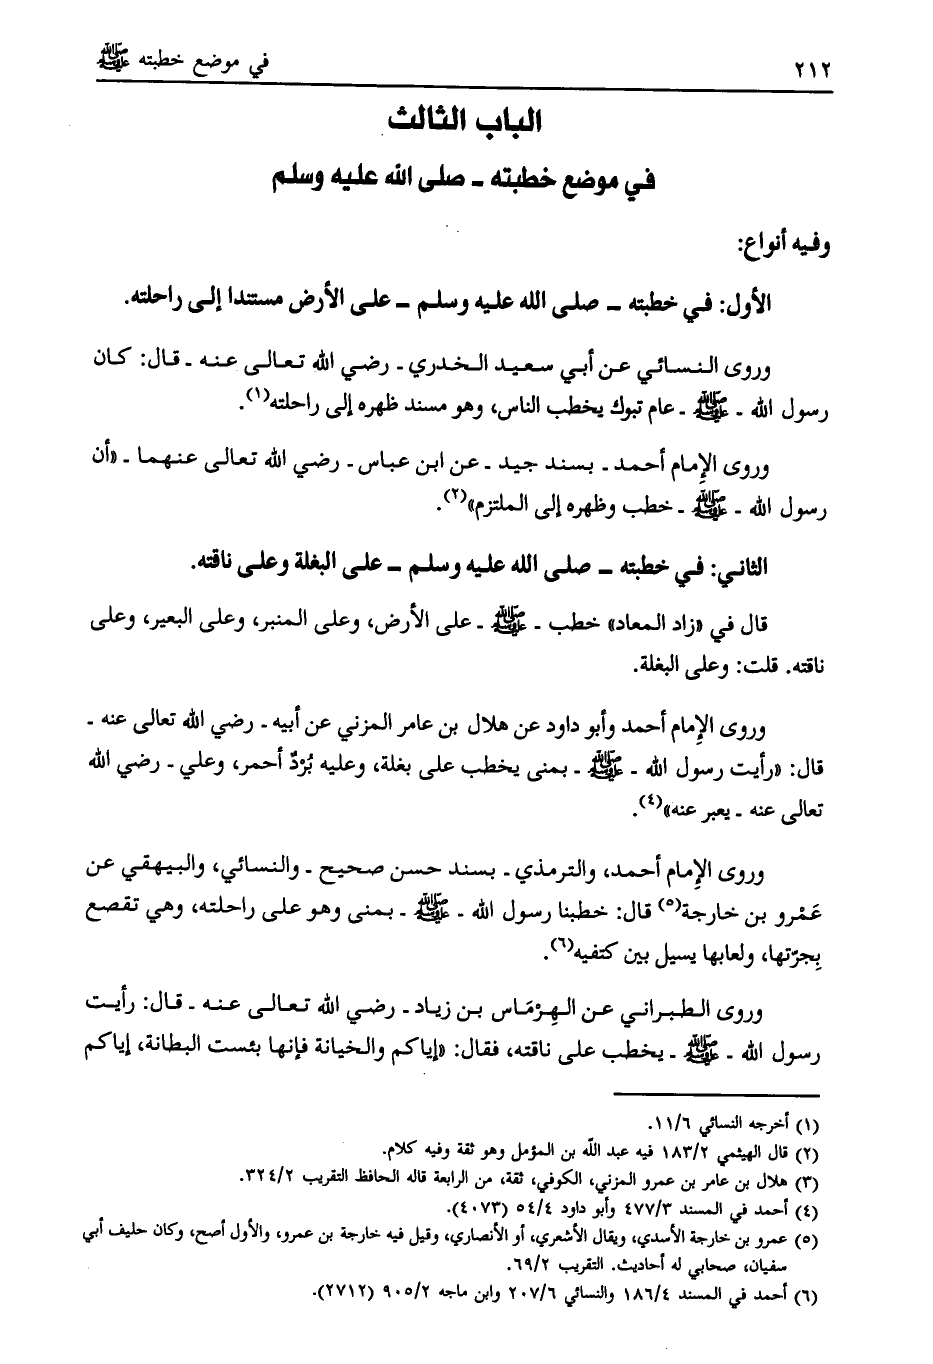 ٢١٢
في موضع خطبته ﷺ
الباب الثالث
في موضع خطبته ـ صلى الله عليه وسلم
وفيه أنواع:
الأول: في خطبته ـ صلى الله عليه وسلم ـ على الأرض مستندا إلى راحلته.
وروى النسائي عن أبي سعيد الخدري ـ رضي الله تعالى عنه ـ قال: كان
رسول الله ـ ﷺ ـ عام تبوك يخطب الناس، وهو مسند ظهره إلى راحلته(١).
وروى الإِمام أحمد ـ بسند جيد ـ عن ابن عباس ـ رضي الله تعالى عنهما ـ «أن
رسول الله ـ ﷺ ـ خطب وظهره إلى الملتزم»(٢).
الثاني: في خطبته ـ صلى الله عليه وسلم ـ على البغلة وعلى ناقته.
قال في «زاد المعاد» خطب ـ ﷺ ـ على الأرض، وعلى المنبر، وعلى البعير، وعلى
ناقته. قلت: وعلى البغلة.
وروى الإِمام أحمد وأبو داود عن هلال بن عامر المزني عن أبيه ـ رضي الله تعالى عنه ـ
قال: «رأيت رسول الله ـ ﷺ ـ بمنى يخطب على بغلة، وعليه بُرْدٌ أحمر، وعلي ـ رضي الله
تعالى عنه ـ يعبر عنه»(٤).
وروى الإِمام أحمد، والترمذي ـ بسند حسن صحيح ـ والنسائي، والبيهقي عن
عَمْرو بن خارجة(٥) قال: خطبنا رسول الله ـ ﷺ ـ بمنى وهو على راحلته، وهي تقصع
بِجرّتها، ولعابها يسيل بين كتفيه(٦).
وروى الطبراني عن الهِرْمَاس بن زياد ـ رضي الله تعالى عنه ـ قال: رأيت
رسول الله ـ ﷺ ـ يخطب على ناقته، فقال: «إياكم والخيانة فإنها بئست البطانة، إياكم
(١) أخرجه النسائي ١١/٦.
(٢) قال الهيثمي ١٨٣/٢ فيه عبد اللّه بن المؤمل وهو ثقة وفيه كلام.
(٣) هلال بن عامر بن عمرو المزني، الكوفي، ثقة، من الرابعة قاله الحافظ التقريب ٣٢٤/٢.
(٤) أحمد في المسند ٤٧٧/٣ وأبو داود ٥٤/٤ (٤٠٧٣).
(٥) عمرو بن خارجة الأسدي، ويقال الأشعري، أو الأنصاري، وقيل فيه خارجة بن عمرو، والأول أصح، وكان حليف أبي
سفيان، صحابي له أحاديث. التقريب ٦٩/٢.
(٦) أحمد في المسند ١٨٦/٤ والنسائي ٢٠٧/٦ وابن ماجه ٩٠٥/٢ (٢٧١٢).